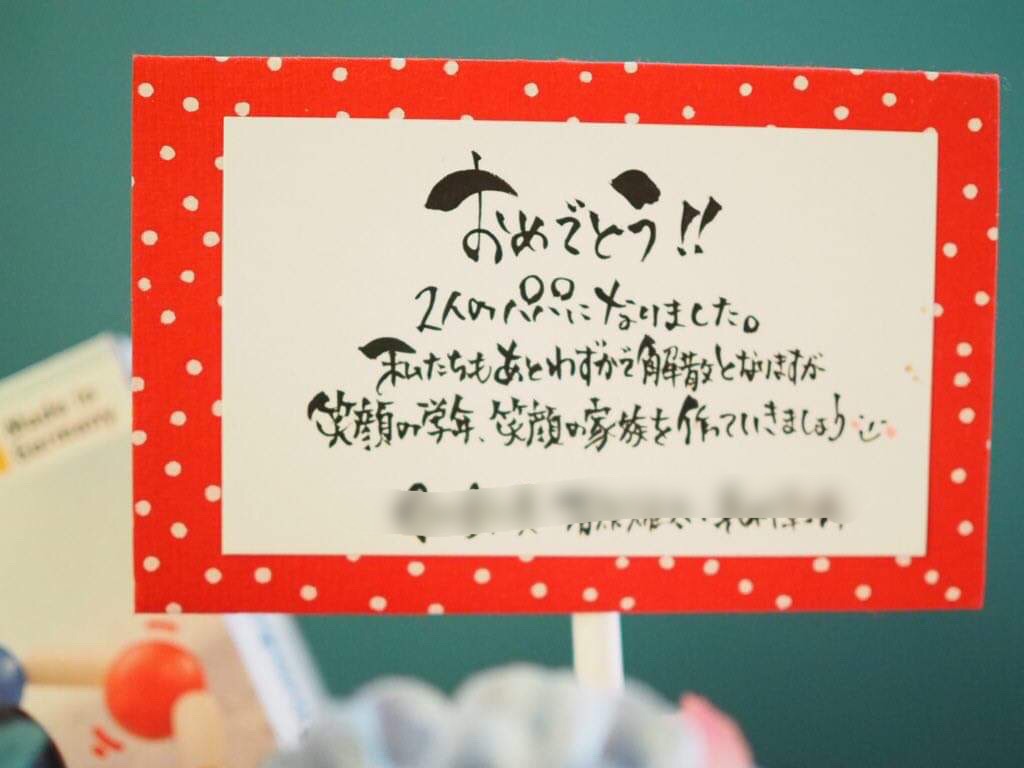 おめでとう!!
2人のパパになりました。
私たちもあとわずかで解散となりますが
笑顔の学年、笑顔の家族を作っていきましょう
Made in
Germany